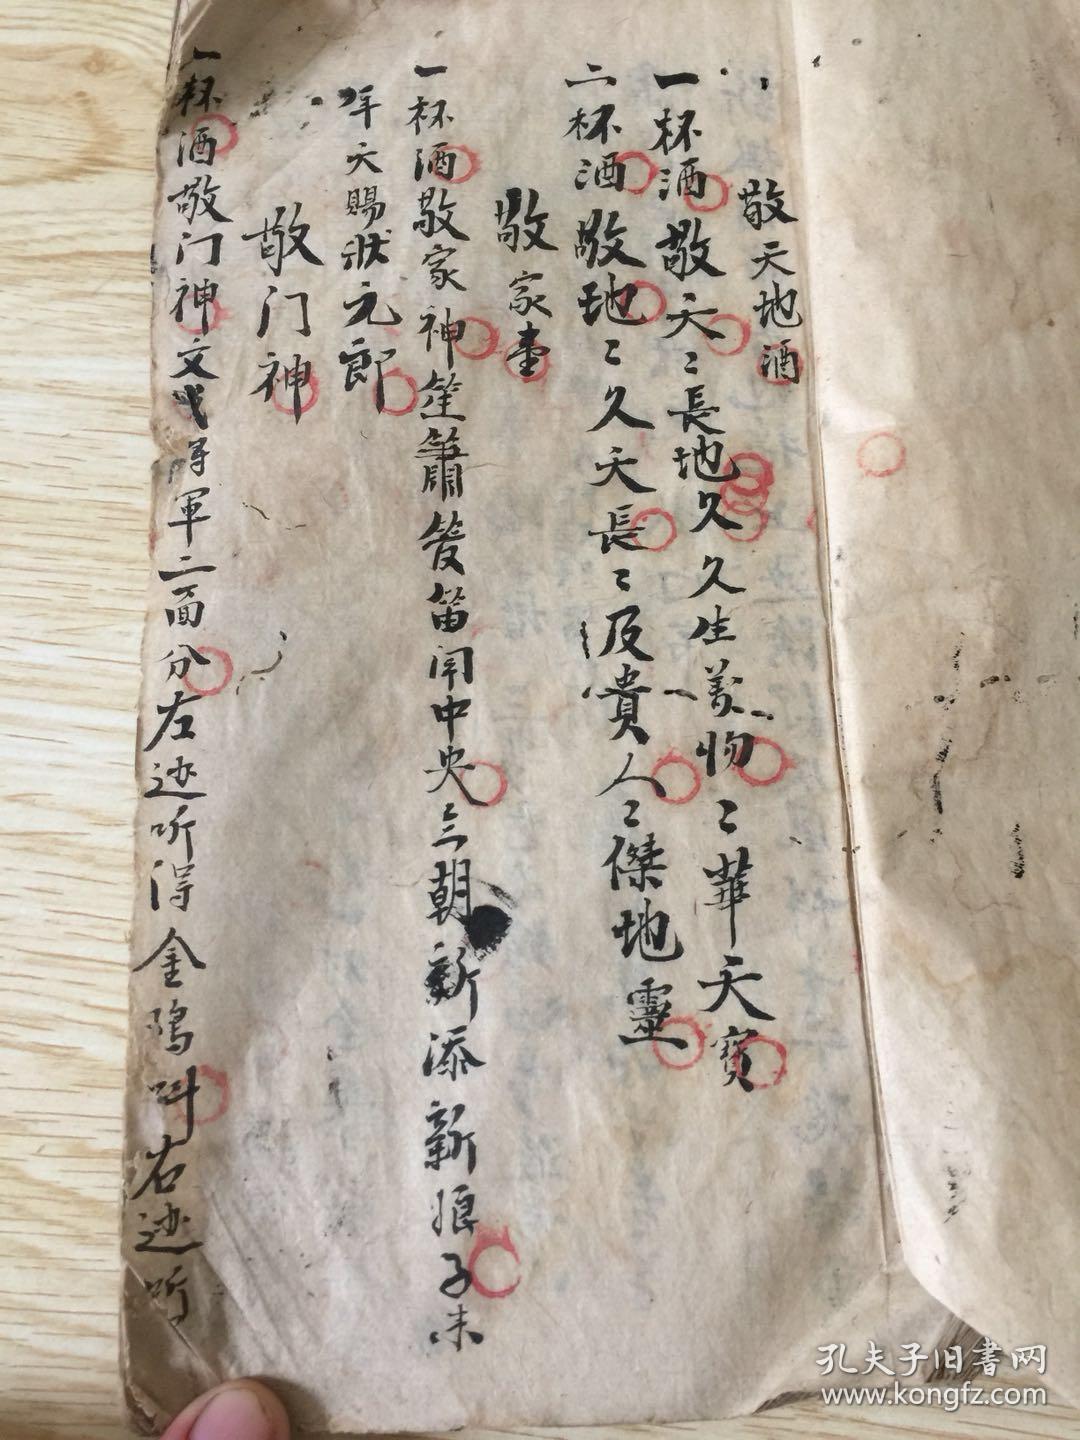 敬天地酒
一杯酒敬天〻長地久久生美物〻華天寳
二杯酒敬地〻久天長〻及貴人〻傑地靈
敬家堂
一杯酒敬家神笙簫笛闹中央三朝新添新娘子来
年天賜狀元郎
敬门神
一杯酒敬门神文武将軍二面分左边听得金鸡叫右边听
孔夫子旧書网
www.kongfz.com